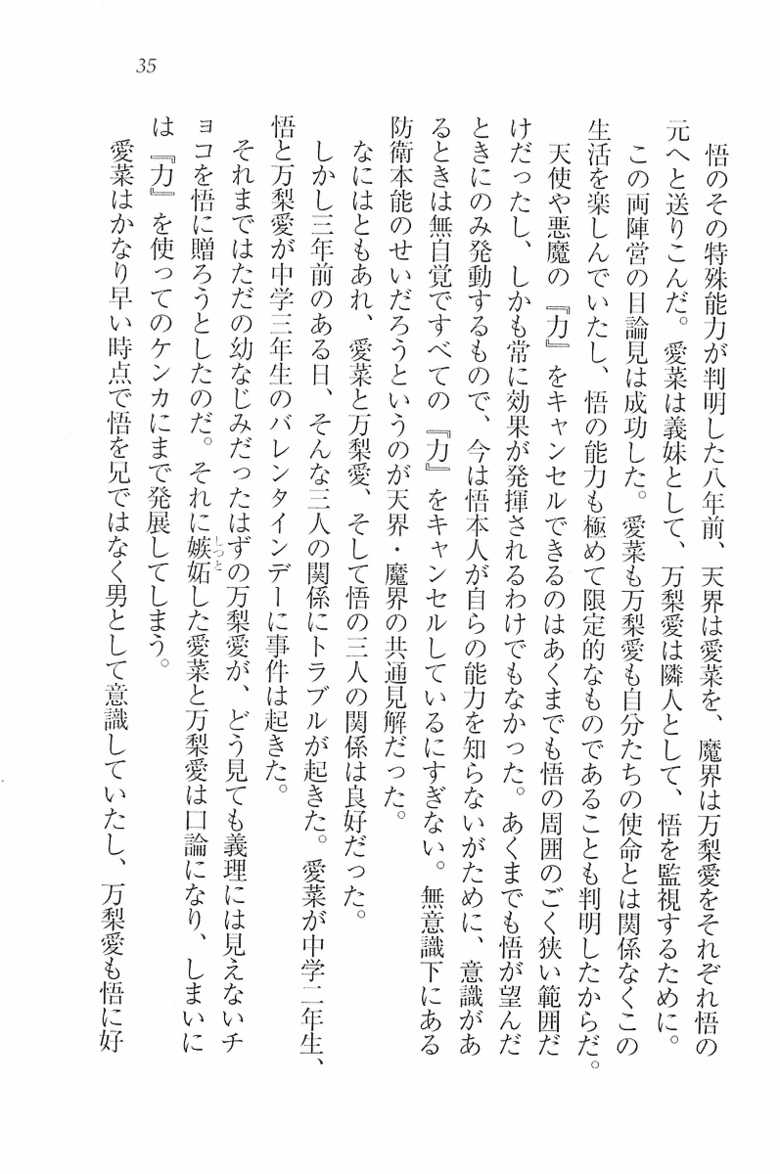 35
悟のその特殊能力が判明した八年前、天界は愛菜を、魔界は万梨愛をそれぞれ悟の
元へと送りこんだ。愛菜は義妹として、万梨愛は隣人として、悟を監視するために。
この両陣営の目論見は成功した。愛菜も万梨愛も自分たちの使命とは関係なくこの
生活を楽しんでいたし、悟の能力も極めて限定的なものであることも判明したからだ。
天使や悪魔の『力』をキャンセルできるのはあくまでも悟の周囲のごく狭い範囲だ
けだったし、しかも常に効果が発揮されるわけでもなかった。あくまでも悟が望んだ
ときにのみ発動するもので、今は悟本人が自らの能力を知らないがために、意識があ
るときは無自覚ですべての『力』をキャンセルしているにすぎない。無意識下にある
防衛本能のせいだろうというのが天界・魔界の共通見解だった。
なにはともあれ、愛菜と万梨愛、そして悟の三人の関係は良好だった。
しかし三年前のある日、そんな三人の関係にトラブルが起きた。愛菜が中学二年生、
悟と万梨愛が中学三年生のバレンタインデーに事件は起きた。
それまではただの幼なじみだったはずの万梨愛が、どう見ても義理には見えないチ
ョコを悟に贈ろうとしたのだ。それに嫉妬した愛菜と万梨愛は口論になり、しまいに
は『力』を使ってのケンカにまで発展してしまう。
愛菜はかなり早い時点で悟を兄ではなく男として意識していたし、万梨愛も悟に好